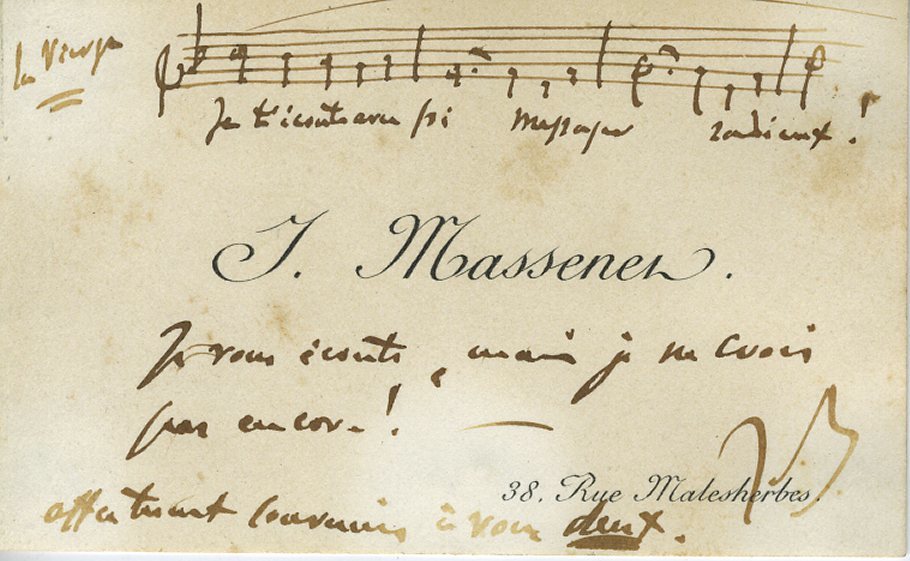 La Vierge
Je t'écoute avec foi messager radieux !
J. Massenet.
Je vous écoute, mais je ne crois
pas encore !
38, Rue Malesherbes.
souvenir à vous deux.